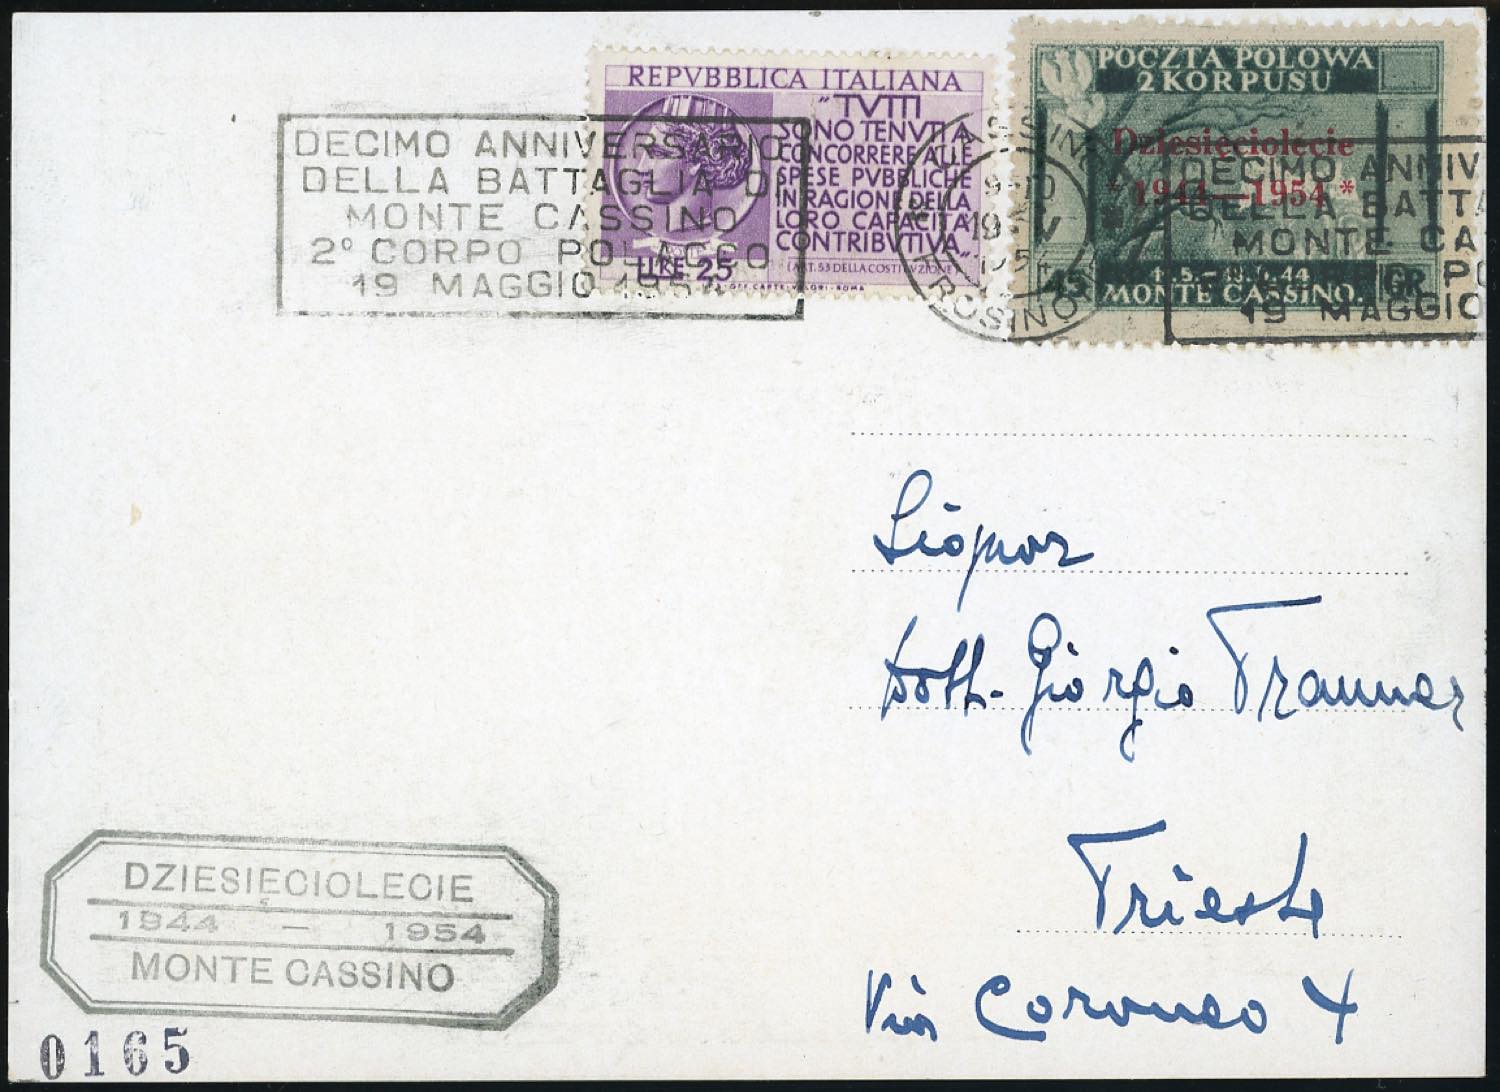 DECIMO ANNIVERSARIO
DELLA BATTAGLIA DI
MONTE CASSINO
2° CORPO POLACCO
19 MAGGIO 1954
REPVBBLICA ITALIANA
"TVTTI
SONO TENVTI A
CONCORRERE ALLE
SPESE PVBBLICHE
IN RAGIONE DELLA
LORO CAPACITÀ
CONTRIBVTIVA"
(ART. 53 DELLA COSTITVZIONE)
LIRE 25
OFF. CARTE-VALORI-ROMA
CASSINO
9-10
19 V
1954
FROSINO
POCZTA POLOWA
2 KORPUSU
Dziesięciolecie
* 1944—1954 *
45 GR
MONTE CASSINO.
DECIMO ANNIV
DELLA BATTA
MONTE CA
PO
19 MAGGIO
Signor
Dott. Giorgio
Trieste
Via Coroneo 4
DZIESIĘCIOLECIE
1944 — 1954
MONTE CASSINO
0165